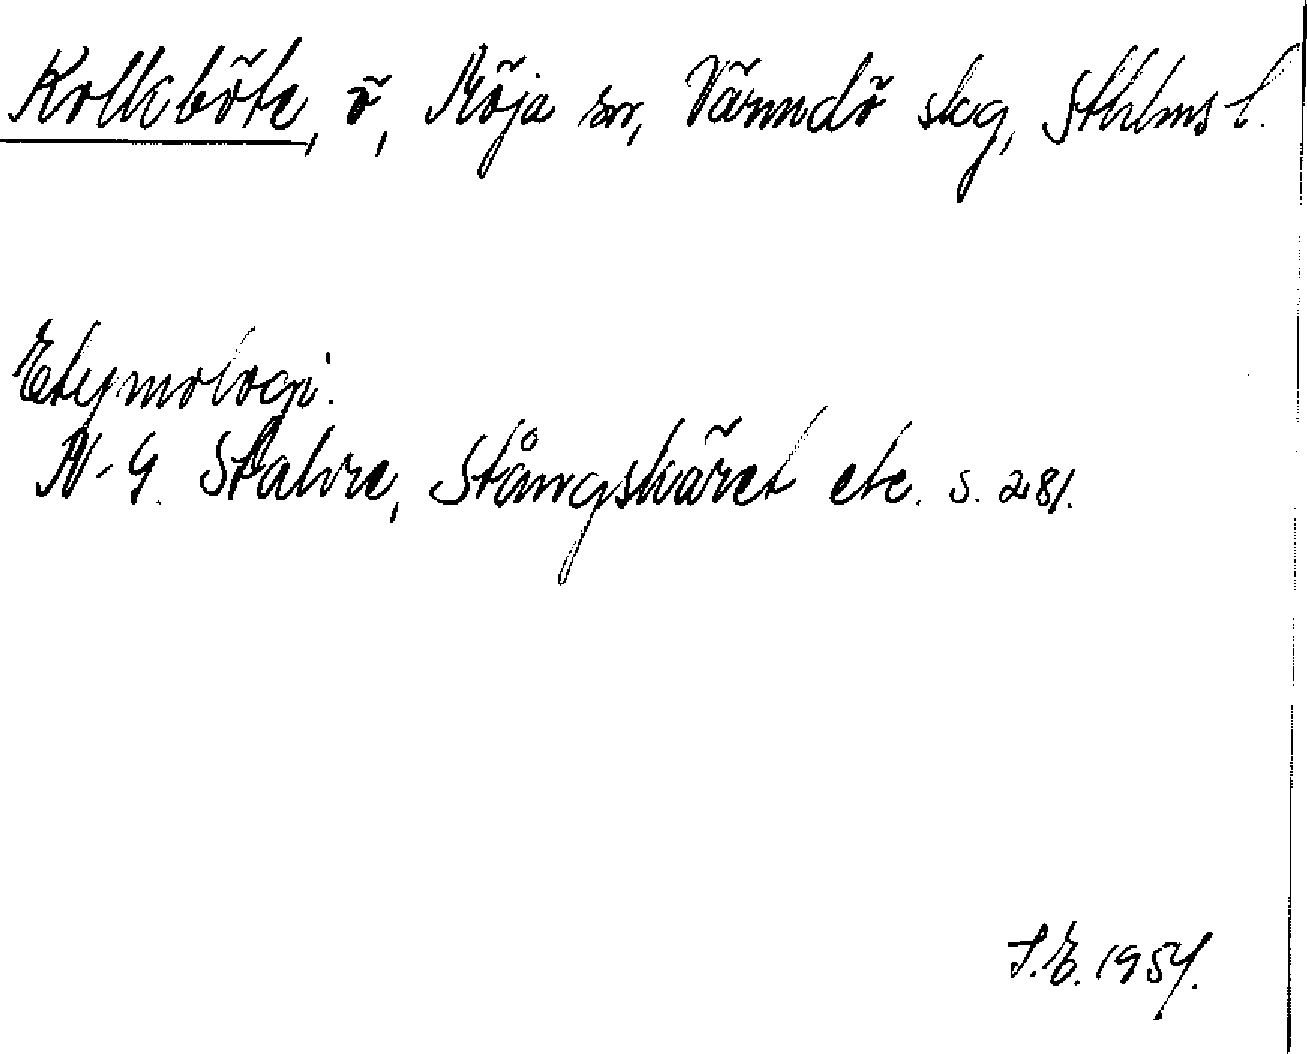 Kolleböte, ö, Möja sn, Värmdö skg, Sthlms l.
Etymologi:
N-G. Stahre, Stångskäret etc. s. 281.
S.E. 1957.